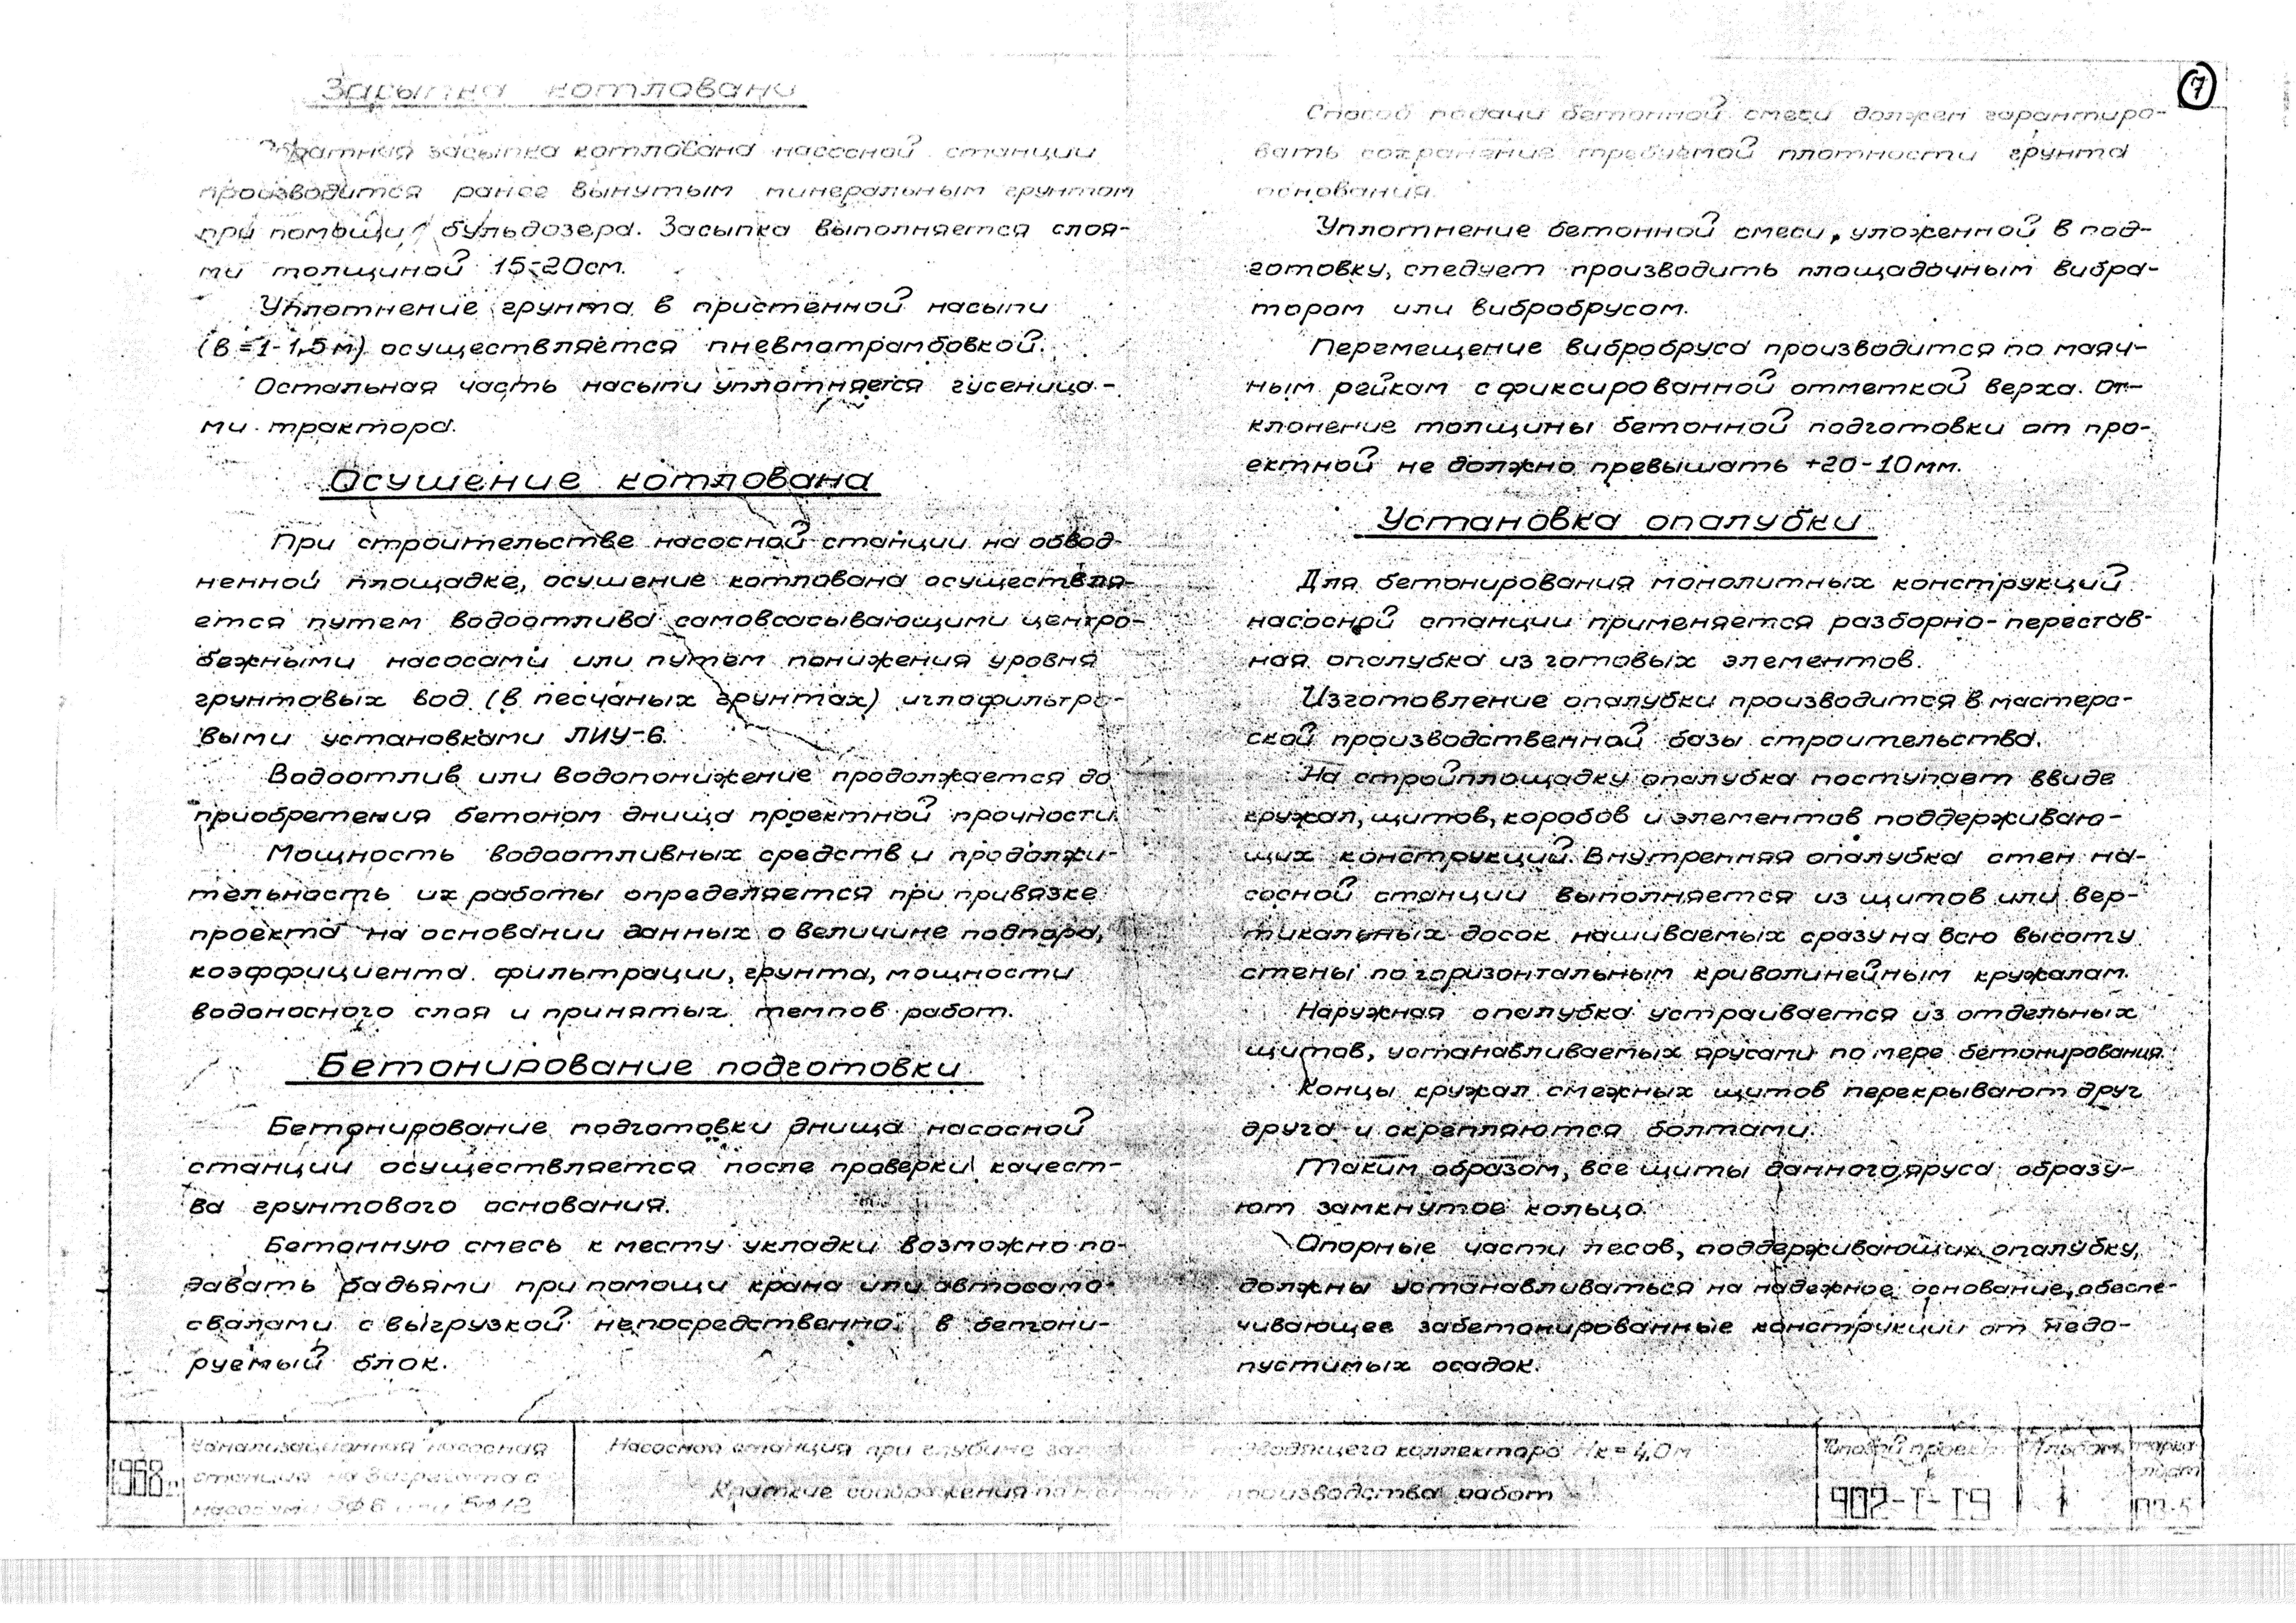 Засыпка котлована
Обратная засыпка котлована насосной станции
производится ранее вынутым минеральным грунтом
при помощи бульдозера. Засыпка выполняется слоя-
ми толщиной 15-20см.
Уплотнение грунта в пристенной насыпи
(в=1-1,5м) осуществляется пневмотрамбовкой.
Остальная часть насыпи уплотняется гусеница-
ми трактора.
Осушение котлована
При строительстве насосной станции на обвод-
ненной площадке, осушение котлована осуществля-
ется путем водоотлива самовсасывающими центро-
бежными насосами или путем понижения уровня
грунтовых вод (в песчаных грунтах) иглофильтро-
выми установками ЛИУ-6.
Водоотлив или водопонижение продолжается до
приобретения бетоном днища проектной прочности.
Мощность водоотливных средств и продолжи-
тельность их работы определяется при привязке
проекта на основании данных о величине подпора,
коэффициента фильтрации, грунта, мощности
водоносного слоя и принятых темпов работ.
Бетонирование подготовки
Бетонирование подготовки днища насосной
станции осуществляется после проверки качест-
ва грунтового основания.
Бетонную смесь к месту укладки возможно по-
давать бадьями при помощи крана или автосамо-
свалами с выгрузкой непосредственно в бетони-
руемый блок.
7
Способ подачи бетонной смеси должен гарантиро-
вать сохранение требуемой плотности грунта
основания.
Уплотнение бетонной смеси, уложенной в под-
готовку, следует производить площадочным вибра-
тором или вибробрусом.
Перемещение вибробруса производится по маяч-
ным рейкам с фиксированной отметкой верха. От-
клонение толщины бетонной подготовки от про-
ектной не должно превышать +20-10мм.
Установка опалубки
Для бетонирования монолитных конструкций
насосной станции применяется разборно-перестав-
ная опалубка из готовых элементов.
Изготовление опалубки производится в мастерс-
ской производственной базы строительства.
На стройплощадку опалубка поступает ввиде
кружал, щитов, коробов и элементов поддерживаю-
щих конструкций. Внутренняя опалубка стен на-
сосной станции выполняется из щитов или вер-
тикальных досок нашиваемых сразу на всю высоту
стены по горизонтальным криволинейным кружалам.
Наружная опалубка устраивается из отдельных
щитов, устанавливаемых ярусами по мере бетонирования.
Концы кружал смежных щитов перекрывают друг
друга и скрепляются болтами.
Таким образом, все щиты данного яруса образу-
ют замкнутое кольцо.
Опорные части лесов, поддерживающих опалубку,
должны устанавливаться на надежное основание, обеспе-
чивающее забетонированные конструкции от недо-
пустимых осадок.
1968г.
Канализационная насосная
станция на 3 агрегата с
насосами
Насосная станция при глубине подводящего коллектора Нк=4,0м
Краткие соображения по производства работ
Типовой проект
902-1-19
Альбом
1
марка
лист
ПЗ-5